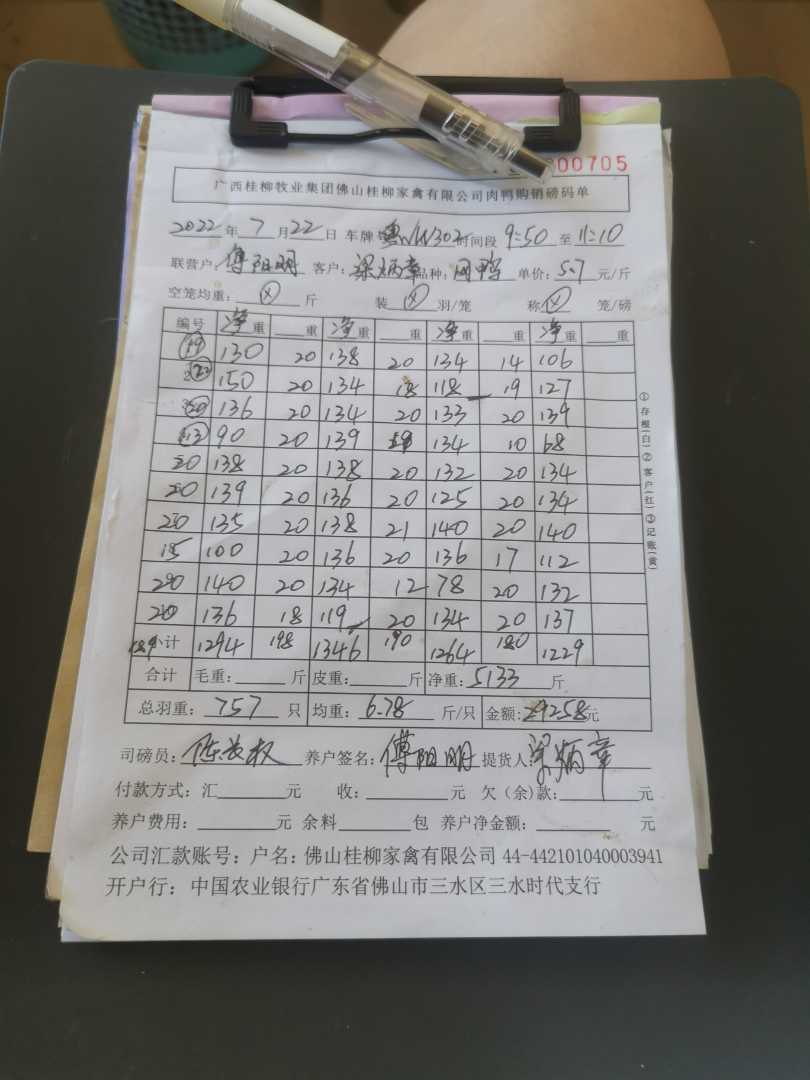 00705
广西桂柳牧业集团佛山桂柳家禽有限公司肉鸭购销磅码单
2022年7月22日 车牌 粤 W302 时间段 9:50 至 11:10
联营户: 傅阳明 客户: 梁炳章 品种: 单价: 5.7 元/斤
空笼均重: 斤 装 羽/笼 称 笼/磅
编号 净重 重 净重 重 净重 重 净重 重
19 130 20 138 20 134 14 106
22 150 20 134 18 118 19 127
20 136 20 134 20 133 20 139
13 90 20 139 19 134 10 68
20 138 20 138 20 132 20 134
20 139 20 136 20 125 20 134
20 135 20 138 21 140 20 140
15 100 20 136 20 136 17 112
20 140 20 134 12 78 20 132
20 136 18 119 20 134 20 137
189 小计 1294 198 1346 190 1264 180 1229
合计 毛重: 斤 皮重: 斤 净重: 5133 斤
总羽重: 757 只 均重: 6.78 斤/只 金额: 29258元
司磅员: 养户签名: 傅阳明 提货人: 梁炳章
付款方式: 汇 元 收: 元 欠(余)款: 元
养户费用: 元 余料 包 养户净金额: 元
公司汇款账号: 户名: 佛山桂柳家禽有限公司 44-442101040003941
开户行: 中国农业银行广东省佛山市三水区三水时代支行
①存根(白)②客户(红)③记账(黄)